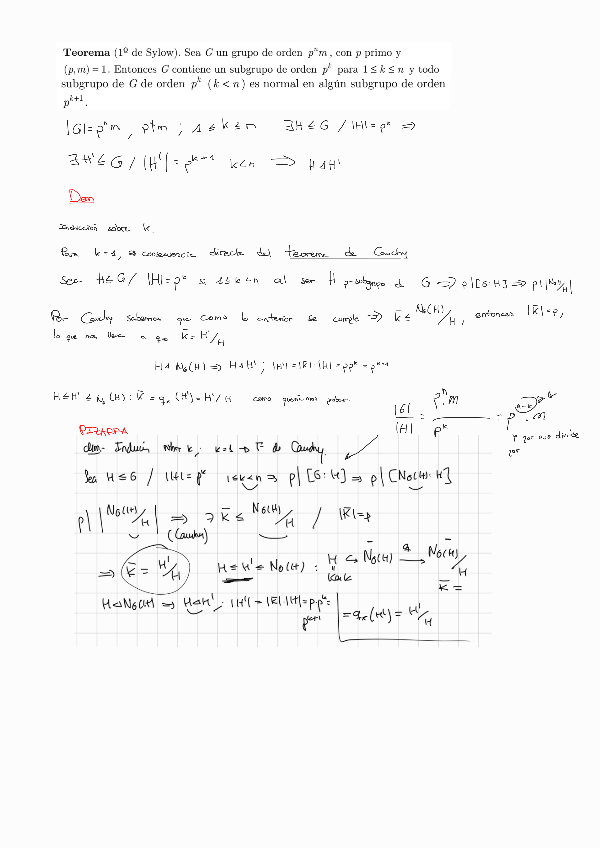 Teorema (1º de Sylow). Sea G un grupo de orden pⁿm, con p primo y
(p,m) = 1. Entonces G contiene un subgrupo de orden pᵏ para 1 ≤ k ≤ n y todo
subgrupo de G de orden pᵏ (k < n) es normal en algún subgrupo de orden
pᵏ⁺¹.
|G| = pⁿm, p∤m ; 1 ≤ k ≤ n ∃H ≤ G / |H| = pᵏ ⇒
∃H' ≤ G / |H'| = pᵏ⁺¹ k<n ⇒ H ⊲ H'
Dem
Inducción sobre k.
Para k=1, es consecuencia directa del teorema de Cauchy
Sea H ≤ G / |H| = pᵏ si 1 ≤ k < n al ser H p-subgrupo d G ⇒ p|[G:H] ⇒ p| |N_G(H)/H|
Por Cauchy sabemos que como lo anterior se cumple ⇒ K̄ ≤ N_G(H)/H, entonces |K̄| = p,
lo que nos lleva a que K̄ = H'/H
H ⊲ N_G(H) ⇒ H ⊲ H' ; |H'| = |K̄|·|H| = p pᵏ = pᵏ⁺¹
H ≤ H' ≤ N_G(H) : K̄ = q_*(H') = H'/H como queríamos probar.
|G|/|H| = pⁿ·m/pᵏ = pⁿ⁻ᵏ·m
Y por eso divide
por
PIZARRA
dem- Inducción sobre k; k=1 → Tª de Cauchy.
Sea H ≤ G / |H| = pᵏ 1≤k<n ⇒ p|[G:H] ⇒ p|[N_G(H):H]
p| |N_G(H)/H| ⇒ ∃ K̄ ≤ N_G(H)/H / |K̄| = p
(Cauchy)
⇒ K̄ = H'/H H ≤ H' ≤ N_G(H) : H ↪ N_G(H) →q N_G(H)/H
K̄ =
H ⊲ N_G(H) ⇒ H ⊲ H' ; |H'| = |K̄|·|H| = p·pᵏ = pᵏ⁺¹
= q_*(H') = H'/H